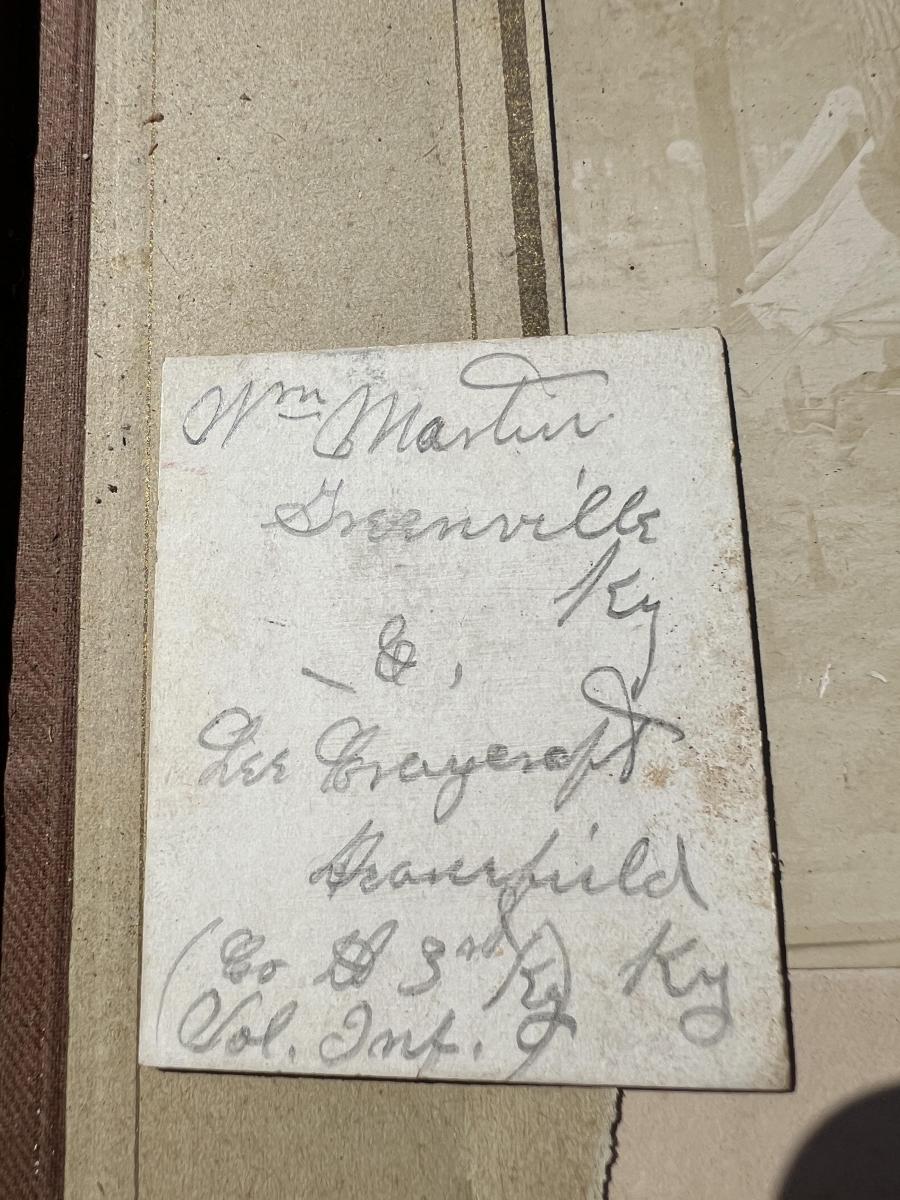 Wm Martin
Greenville
Ky
&
Lee Craycroft
Deanefield
Ky
(Co H 3rd Ky
Vol. Inf.)